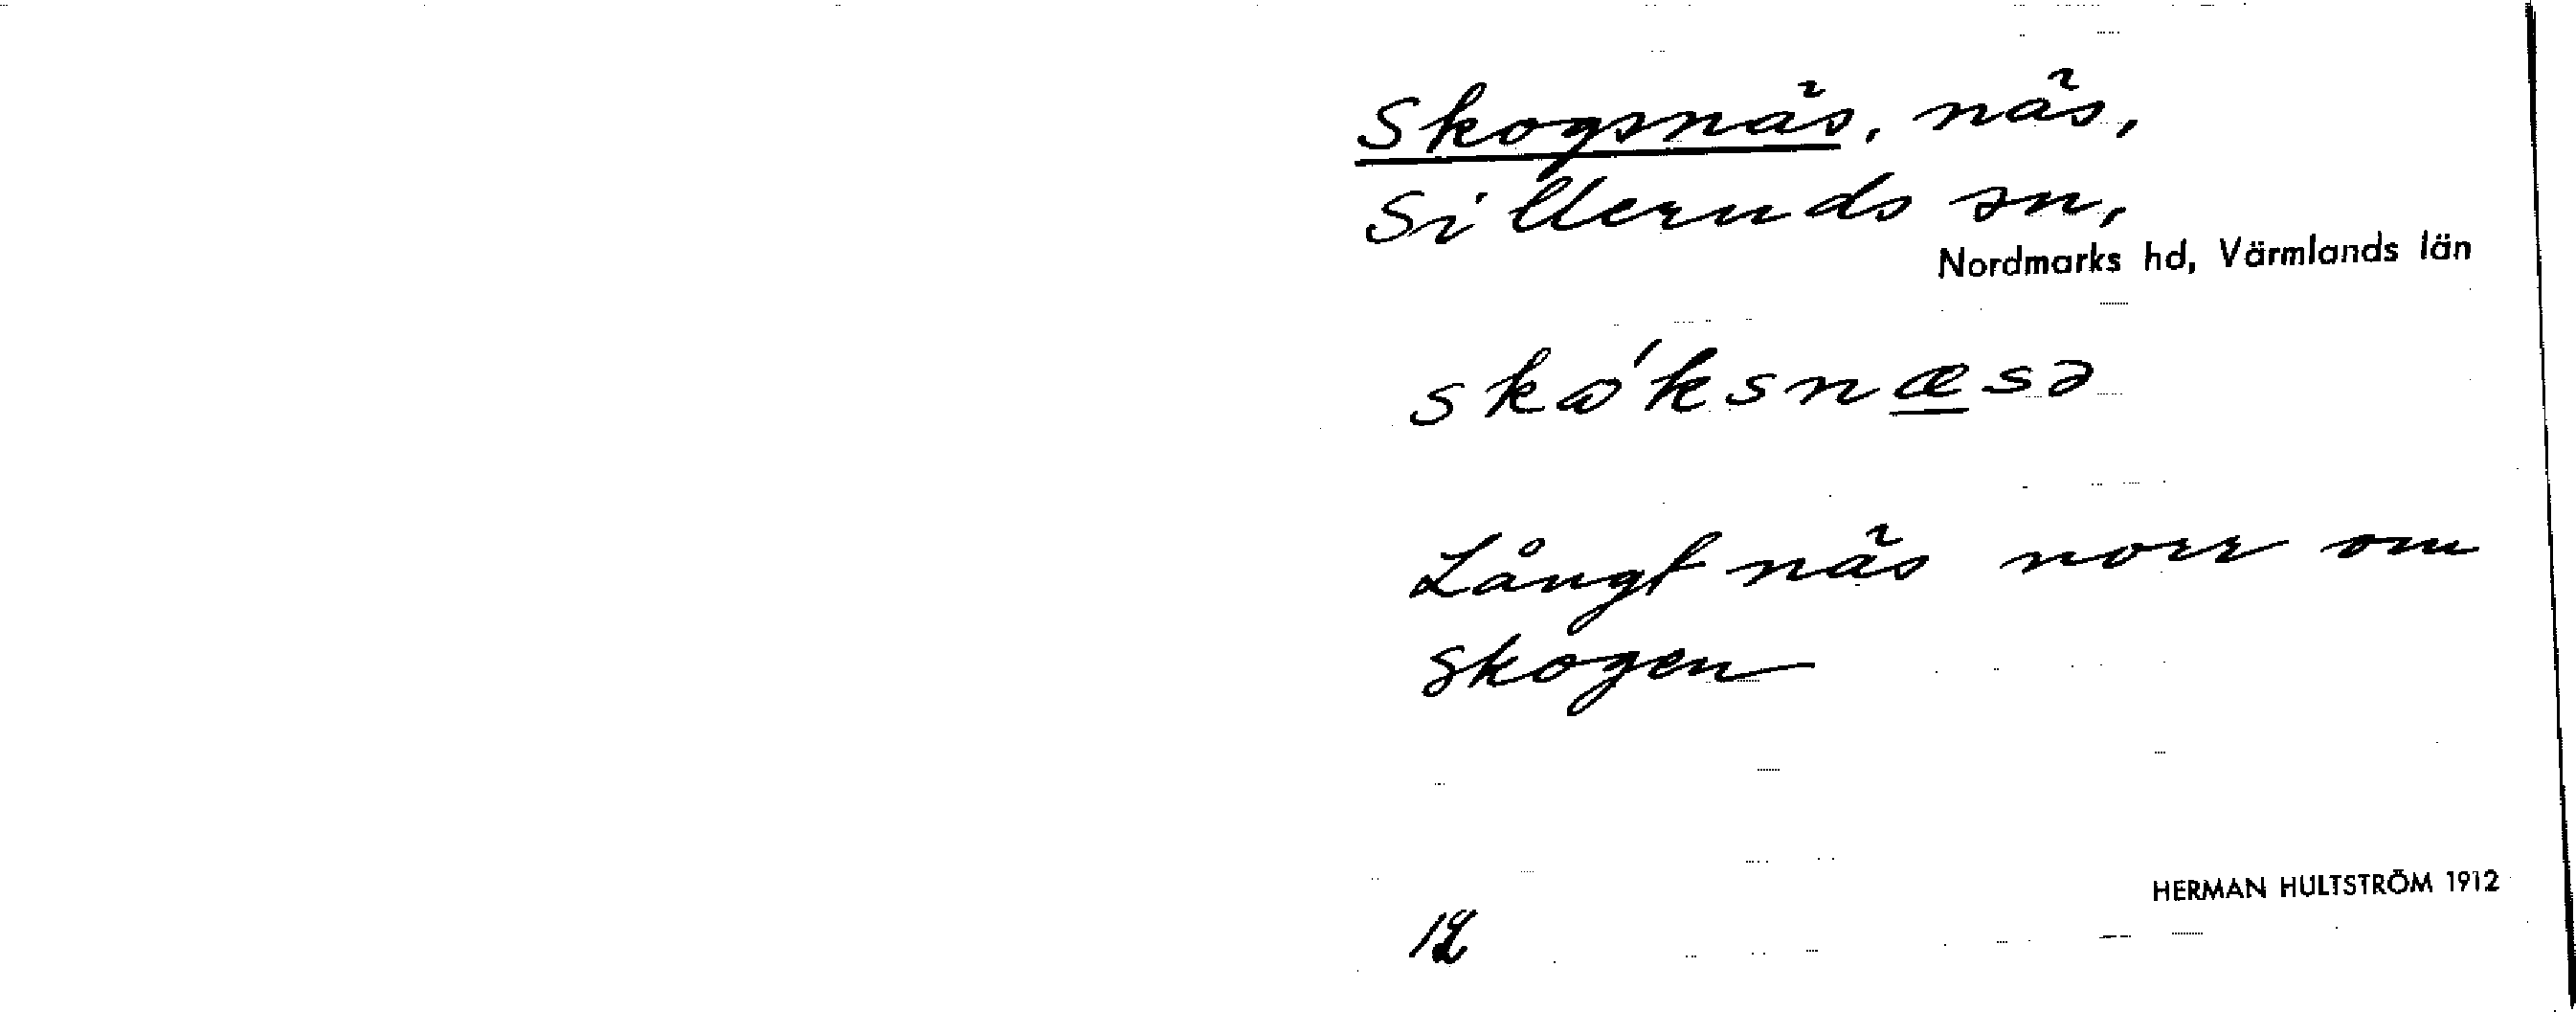 Skogsnäs, näs,
Silleruds sn,
Nordmarks hd, Värmlands län
skω'ksnæsə
Långt näs norr om
skogen
HERMAN HULTSTRÖM 1912